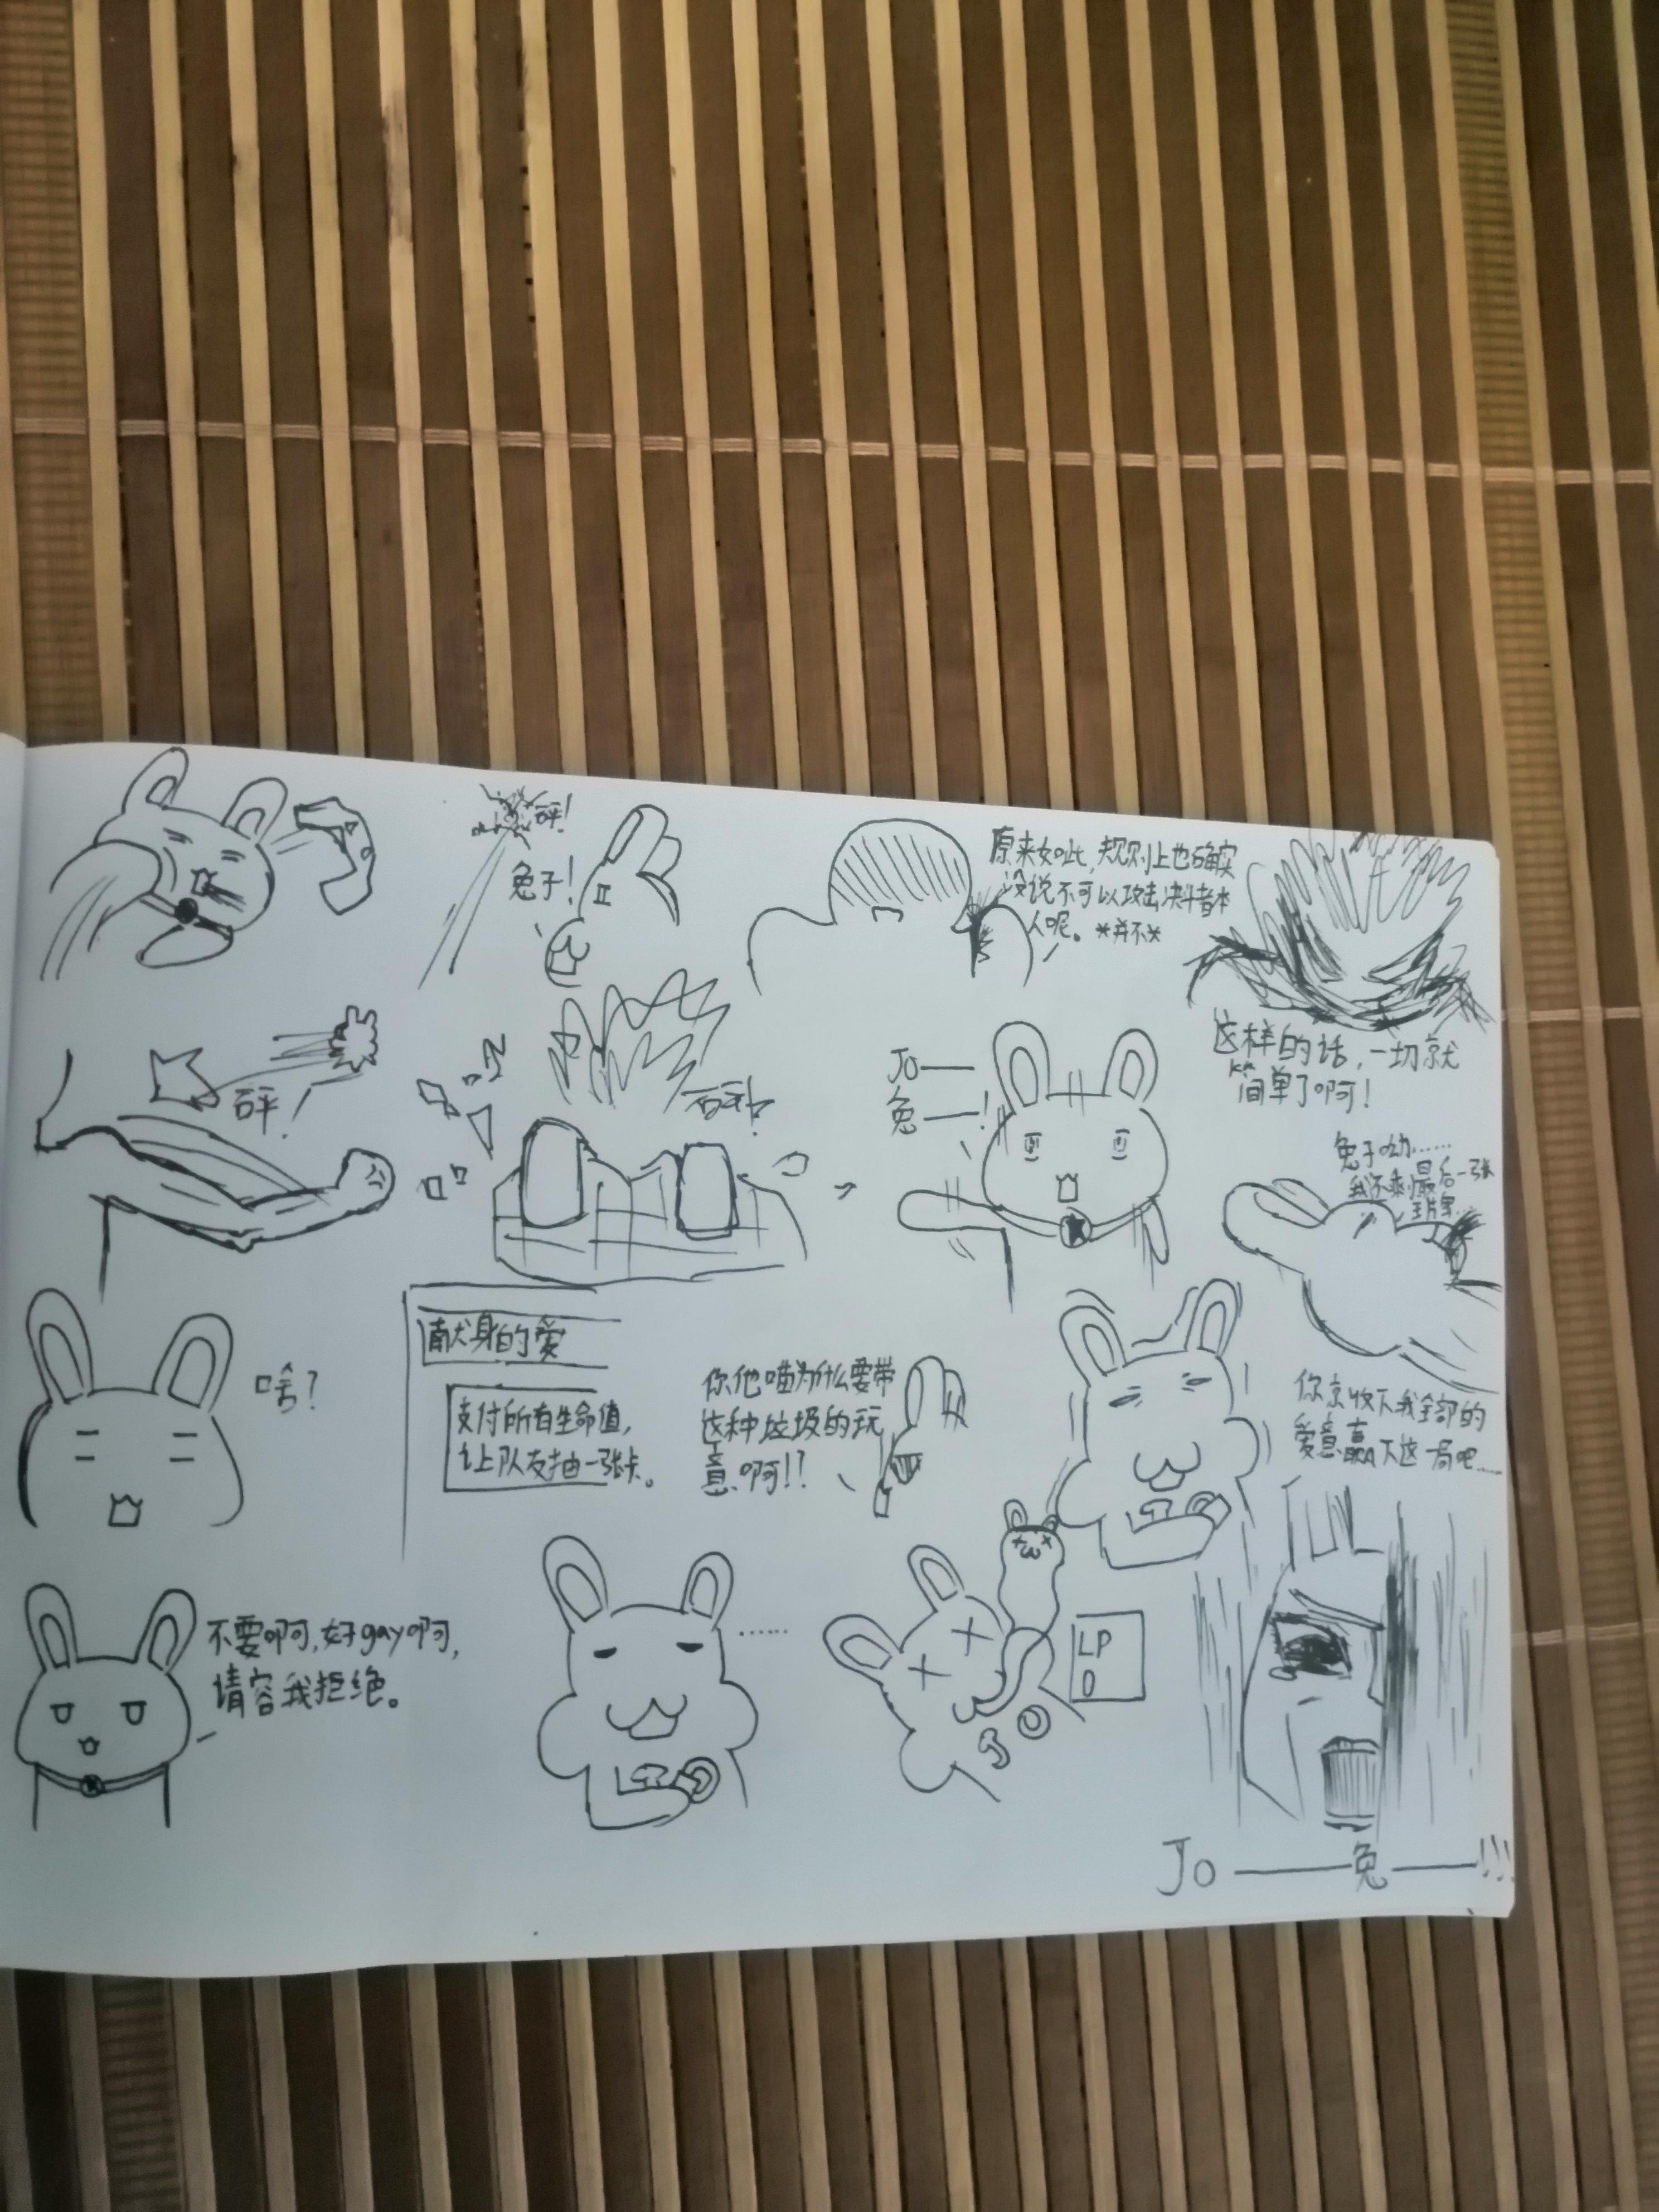 砰!
兔子!
原来如此,规则上也确实
没说不可以攻击决斗者本
人呢。*并不*
砰!
砰!
Jo——
兔——!
这样的话,一切就
简单了啊!
兔子呦……
我还剩最后一张
手牌…
啥?
献身的爱
支付所有生命值,
让队友抽一张卡。
你他喵为什么要带
这种垃圾的玩
意啊!?
你就收下我全部的
爱意赢下这一局吧……
不要啊,好gay啊,
请容我拒绝。
……
LP
0
Jo——兔——!!!